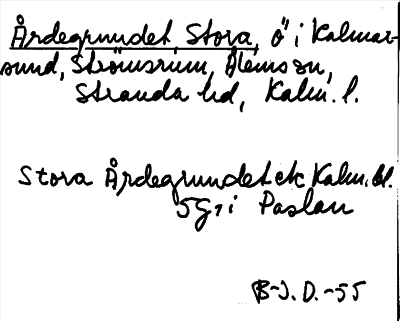 Årdegrundet, Stora, ö i Kalmar-
sund, Strömsrum, Ålems sn,
Stranda hd, Kalm. l.
Stora Årdegrundet ek Kalm. bl.
5G, i Paslan
B-J.D.-55